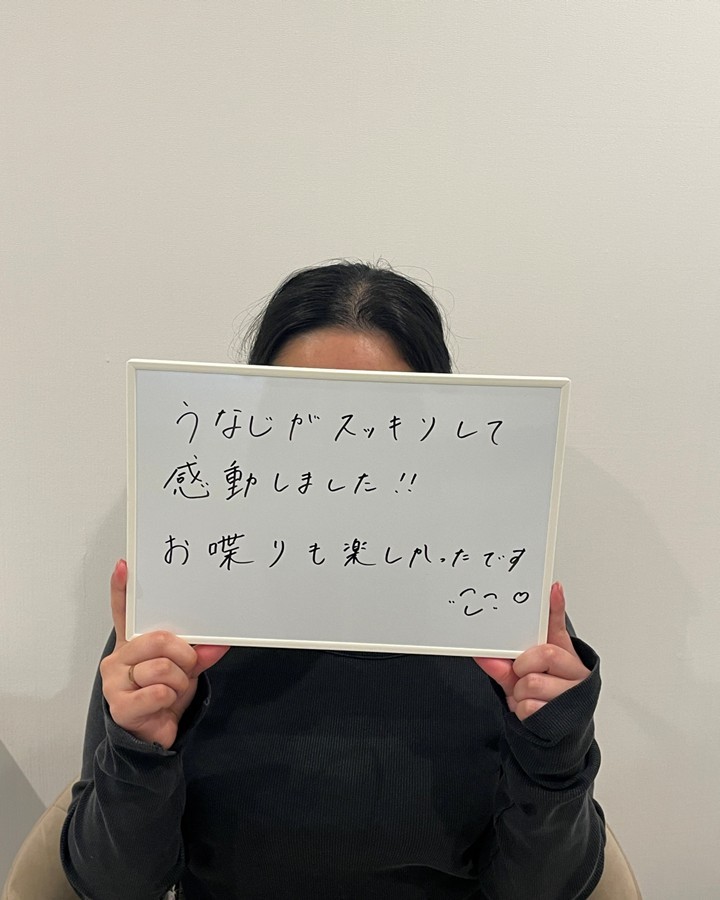 うなじがスッキリして
感動しました!!
お喋りも楽しかったです
♡